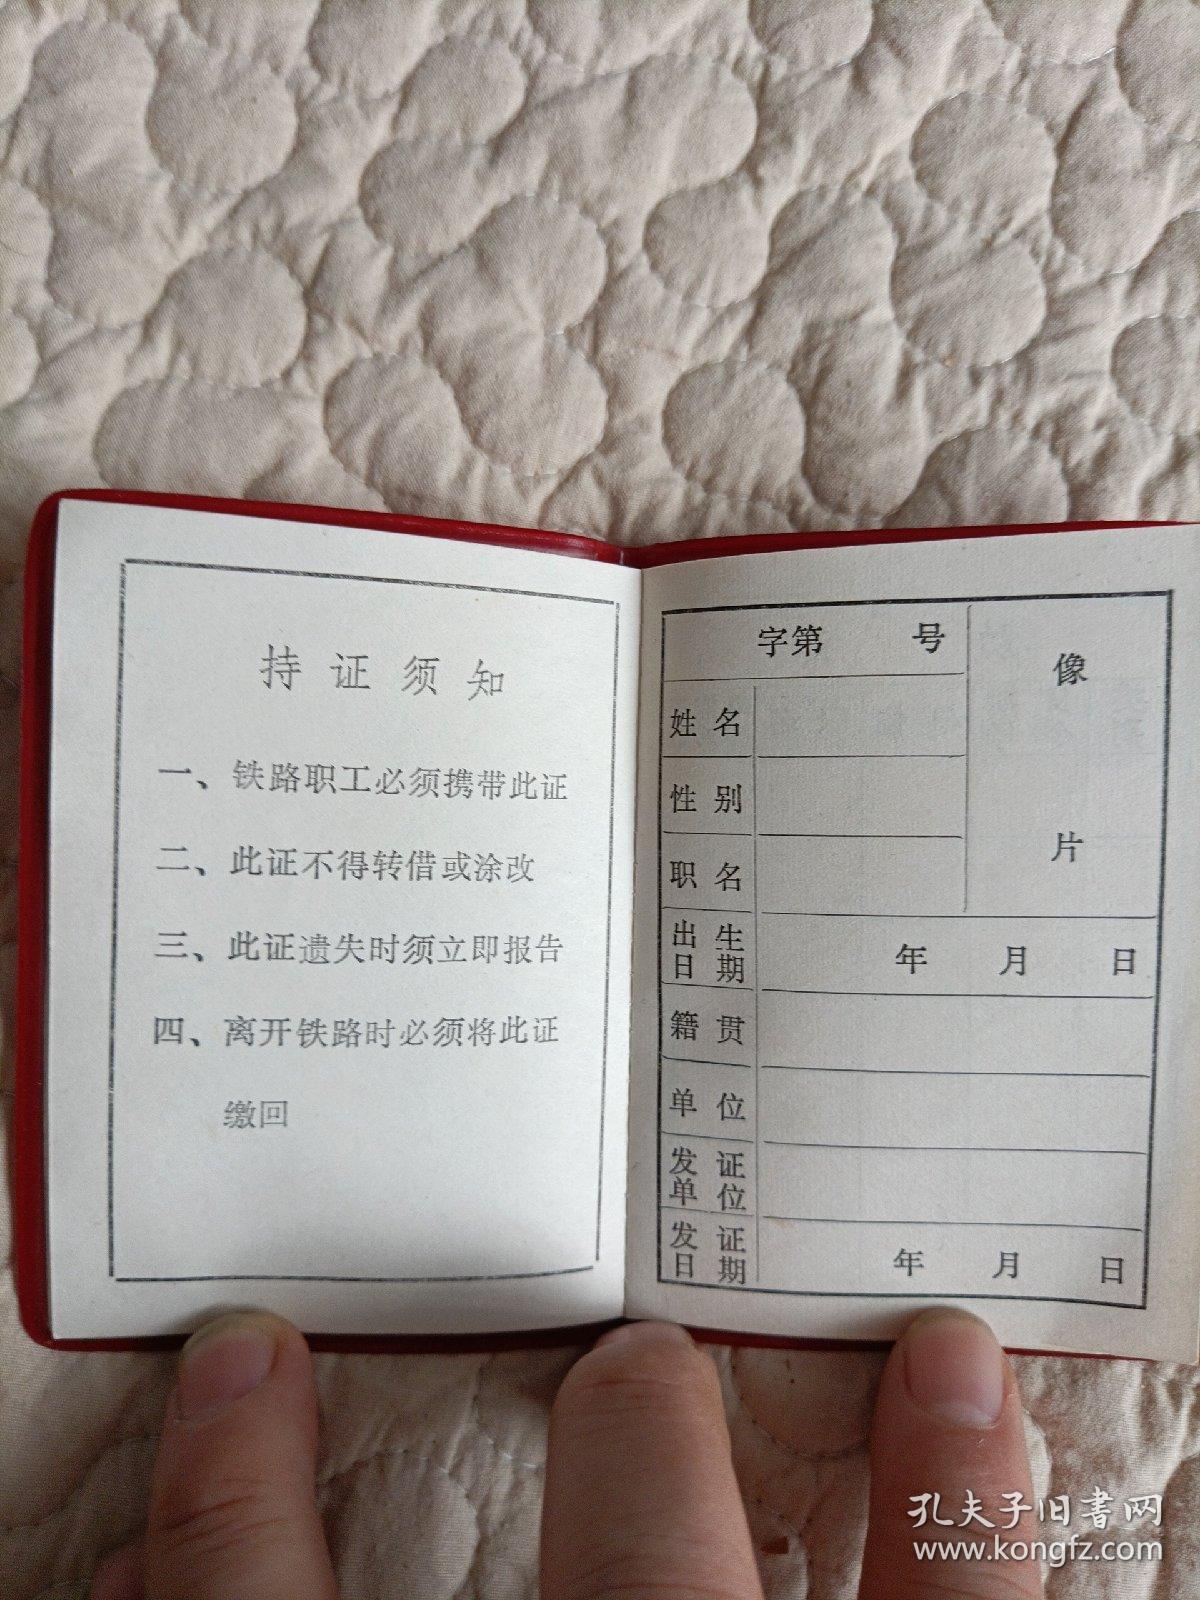 持证须知
一、铁路职工必须携带此证
二、此证不得转借或涂改
三、此证遗失时须立即报告
四、离开铁路时必须将此证
缴回
字第 号
像
片
姓名
性别
职名
出生
日期
年 月 日
籍贯
单位
发证
单位
发证
日期
年 月 日
孔夫子旧書网
www.kongfz.com